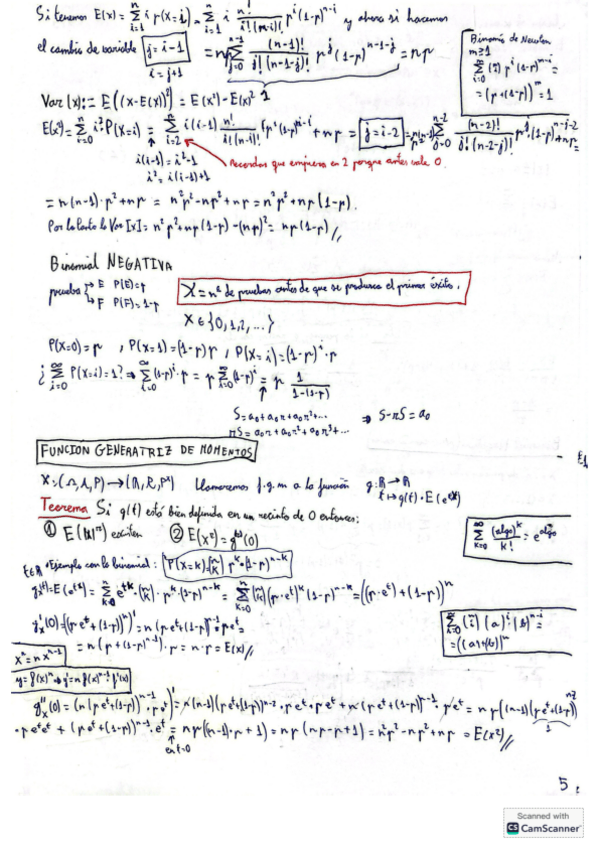 Si tenemos E(x) = Σ_{i=1}^{n} i P(X=i) = Σ_{i=1}^{n} i n!/(i!(n-i)!) p^i (1-p)^{n-i} y ahora si hacemos
el cambio de variable j = i-1
i = j+1
= n p Σ_{j=0}^{n-1} (n-1)!/(j!(n-1-j)!) p^j (1-p)^{n-1-j} = np
1
Binomio de Newton
m≥1
Σ_{i=0}^{m} (m i) p^i (1-p)^{m-i} =
= (p+(1-p))^m = 1
Var(x) = E((x-E(x))²) = E(x²) - E(x)²
E(x²) = Σ_{i=0}^{n} i² P(X=i) = Σ_{i=2}^{n} i(i-1) n!/(i!(n-i)!) p^i (1-p)^{n-i} + np = j=i-2 = n(n-1)p² Σ_{j=0}^{n-2} (n-2)!/(j!(n-2-j)!) p^j (1-p)^{n-j-2} + np =
i(i-1) = i²-i
i² = i(i-1)+i
Recordar que empieza en 2 porque antes vale 0.
= n(n-1)·p² + np = n²p² - np² + np = n²p² + np(1-p).
Por lo tanto la Var[X] = n²p² + np(1-p) - (np)² = np(1-p) //
Binomial NEGATIVA
prueba E P(E)=p
F P(F)=1-p
X = nº de pruebas antes de que se produzca el primer éxito.
X ∈ {0,1,2,...}
P(X=0)=p , P(X=1)=(1-p)p , P(X=i)=(1-p)^i·p
¿ Σ_{i=0}^{∞} P(X=i)=1? ⇒ Σ_{i=0}^{∞} (1-p)^i·p = p Σ_{i=0}^{∞} (1-p)^i = p 1/(1-(1-p))
S = a₀+a₀r+a₀r²+... ⇒ S-rS = a₀
rS = a₀r+a₀r²+a₀r³+...
FUNCIÓN GENERATRIZ DE MOMENTOS
X: (Ω,A,P) → (R,R,Pˣ) Llamaremos f.g.m a la función g: R→R
t ↦ g(t) = E(e^{tx})
Teorema Si g(t) está bien definida en un recinto de 0 entonces:
① E(|x|ⁿ) existen ② E(xⁿ) = g⁽ⁿ⁾(0)
Σ_{k=0}^{∞} (algo)^k/k! = e^{algo}
t∈R • Ejemplo con la binomial: P(X=k) = (n k) p^k·(1-p)^{n-k}
gₓ(t) = E(e^{tx}) = Σ_{k=0}^{n} e^{tk}·(n k)·p^k·(1-p)^{n-k} = Σ_{k=0}^{n} (n k)(p·e^t)^k (1-p)^{n-k} = ((p·e^t)+(1-p))^n
g'ₓ(0) = ((pe^t+(1-p))^n)' = n(pe^t+(1-p))^{n-1}·pe^t =
= n(p+(1-p))^{n-1}·p = n·p = E(x) //
Σ_{i=0}^{n} (n i)(a)^i·(b)^{n-i} =
= ((a)+(b))^n
xⁿ = nx^{n-1}
y = f(x)ⁿ → y' = n f(x)^{n-1} f'(x)
g''ₓ(0) = (n(pe^t+(1-p))^{n-1}·pe^t)' = n(n-1)(pe^t+(1-p))^{n-2}·pe^t·pe^t + n(pe^t+(1-p))^{n-1}·pe^t = np((n-1)(pe^t+(1-p))^{n-2}
·pe^t e^t + (pe^t+(1-p))^{n-1}·e^t = np((n-1)·p+1) = np(np-p+1) = n²p² - np² + np = E(x²) //
en t=0
1
5
Scanned with
CS CamScanner